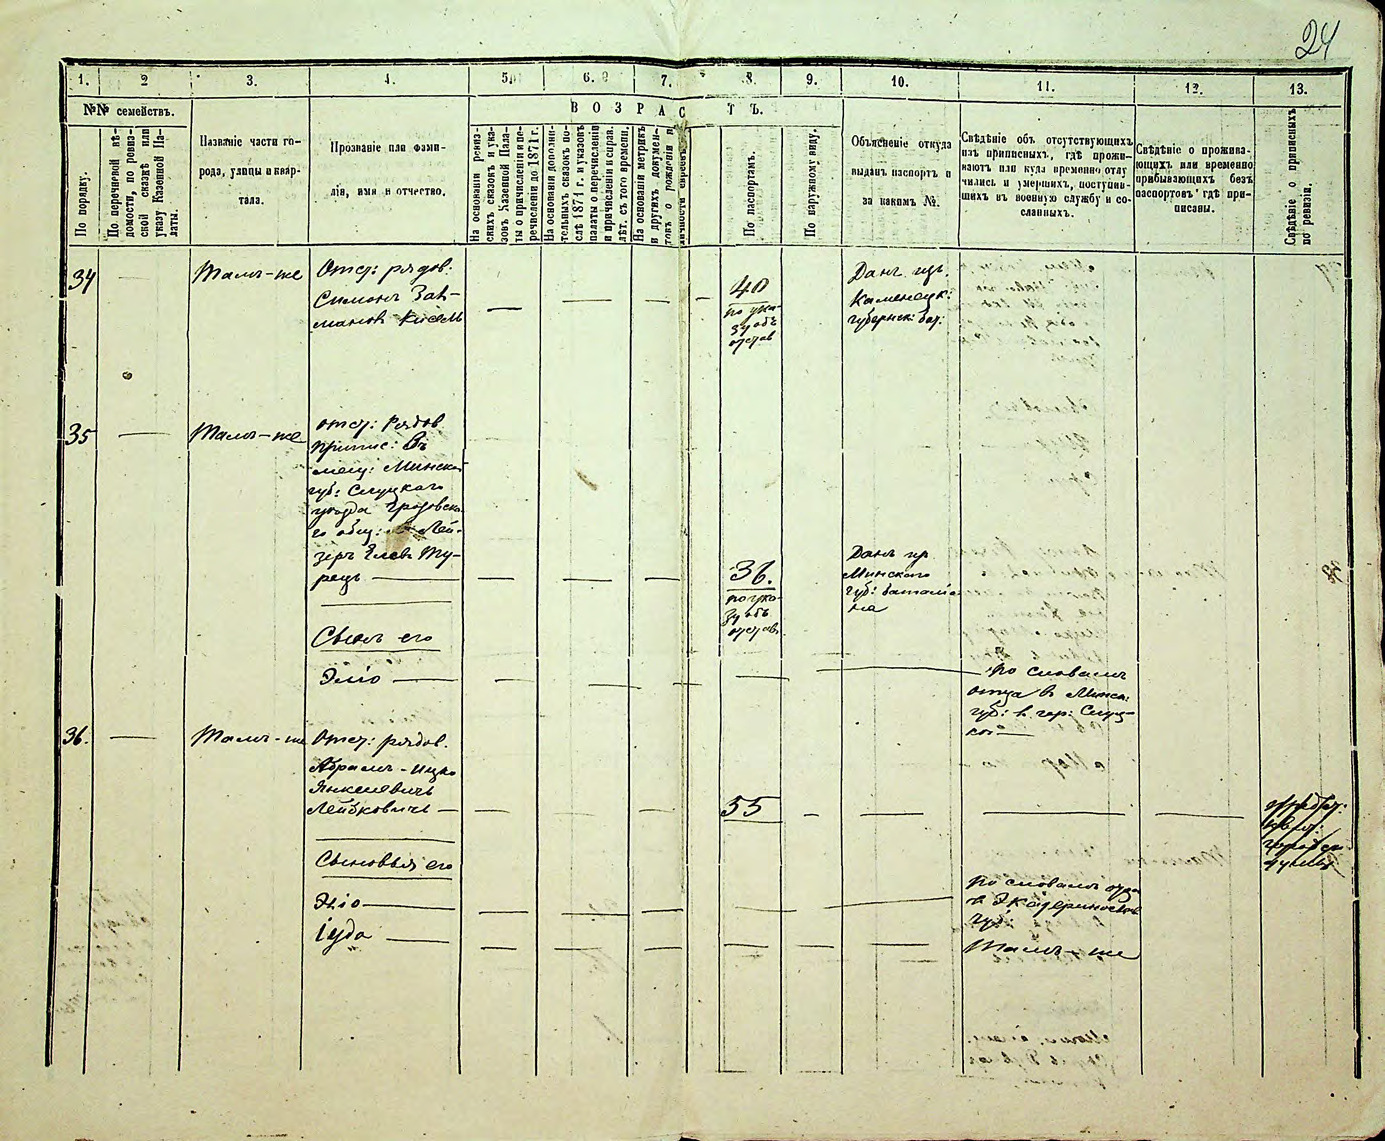 24
1. 2 3. 4. 5. 6. 7. 8. 9. 10. 11. 12. 13.
№№ семействъ.
В О З Р А С Т Ъ.
По порядку.
По перечневой вѣ-
домости, по ревиз-
ской сказкѣ или
указу Казенной Па-
латы.
Названіе части го-
рода, улицы и квар-
тала.
Прозваніе или фами-
лія, имя и отчество.
На основаніи ревиз-
скихъ сказокъ и ука-
зовъ Казенной Пала-
ты о причисленіи и пе-
речисленіи до 1871 г.
На основаніи дополни-
тельныхъ сказокъ по-
слѣ 1871 г. и указовъ
палаты о перечисленіи
и причисленіи и справ.
лѣт. съ того времени.
На основаніи метрикъ
и другихъ докумен-
товъ о рожденіи и
личности евреевъ.
По паспортамъ.
По наружному виду.
Объясненіе откуда
выданъ паспортъ и
за какимъ №.
Свѣдѣніе объ отсутствующихъ
изъ приписныхъ, гдѣ прожи-
ваютъ или куда временно отлу
чились и умершихъ, поступив-
шихъ въ военную службу и со-
сланныхъ.
Свѣдѣніе о прожива-
ющихъ или временно
прибывающихъ безъ
паспортовъ гдѣ при-
писаны.
Свѣдѣніе о приписныхъ
по ревизіи.
34
—
Тамъ-же
Отст: рядов.
Симонъ Зал-
мановъ
40
по ука-
зу объ
отстав
Данъ изъ
Каменецк:
губернск: бат:
35
—
Тамъ-же
отст: Рядов
припис: Въ
мещ: Минской
губ: Слуцкаго
уѣзда
го общ: Лей-
зеръ
рецъ —
36.
по ука-
зу объ
отстав.
Данъ изъ
Минскаго
губ: баталіо
на
Сынъ его
Эліо —
по словамъ
отца въ Минск:
губ: в гор: Слуц-
кѣ —
36.
—
Тамъ-же
Отст: рядов.
Абрамъ-Ицко
Янкелевичъ
Лейбковичъ —
55
Сыновья его
Эліо —
по словамъ отца
в Экатеринослав
губ:
Іуда —
Тамъ-же